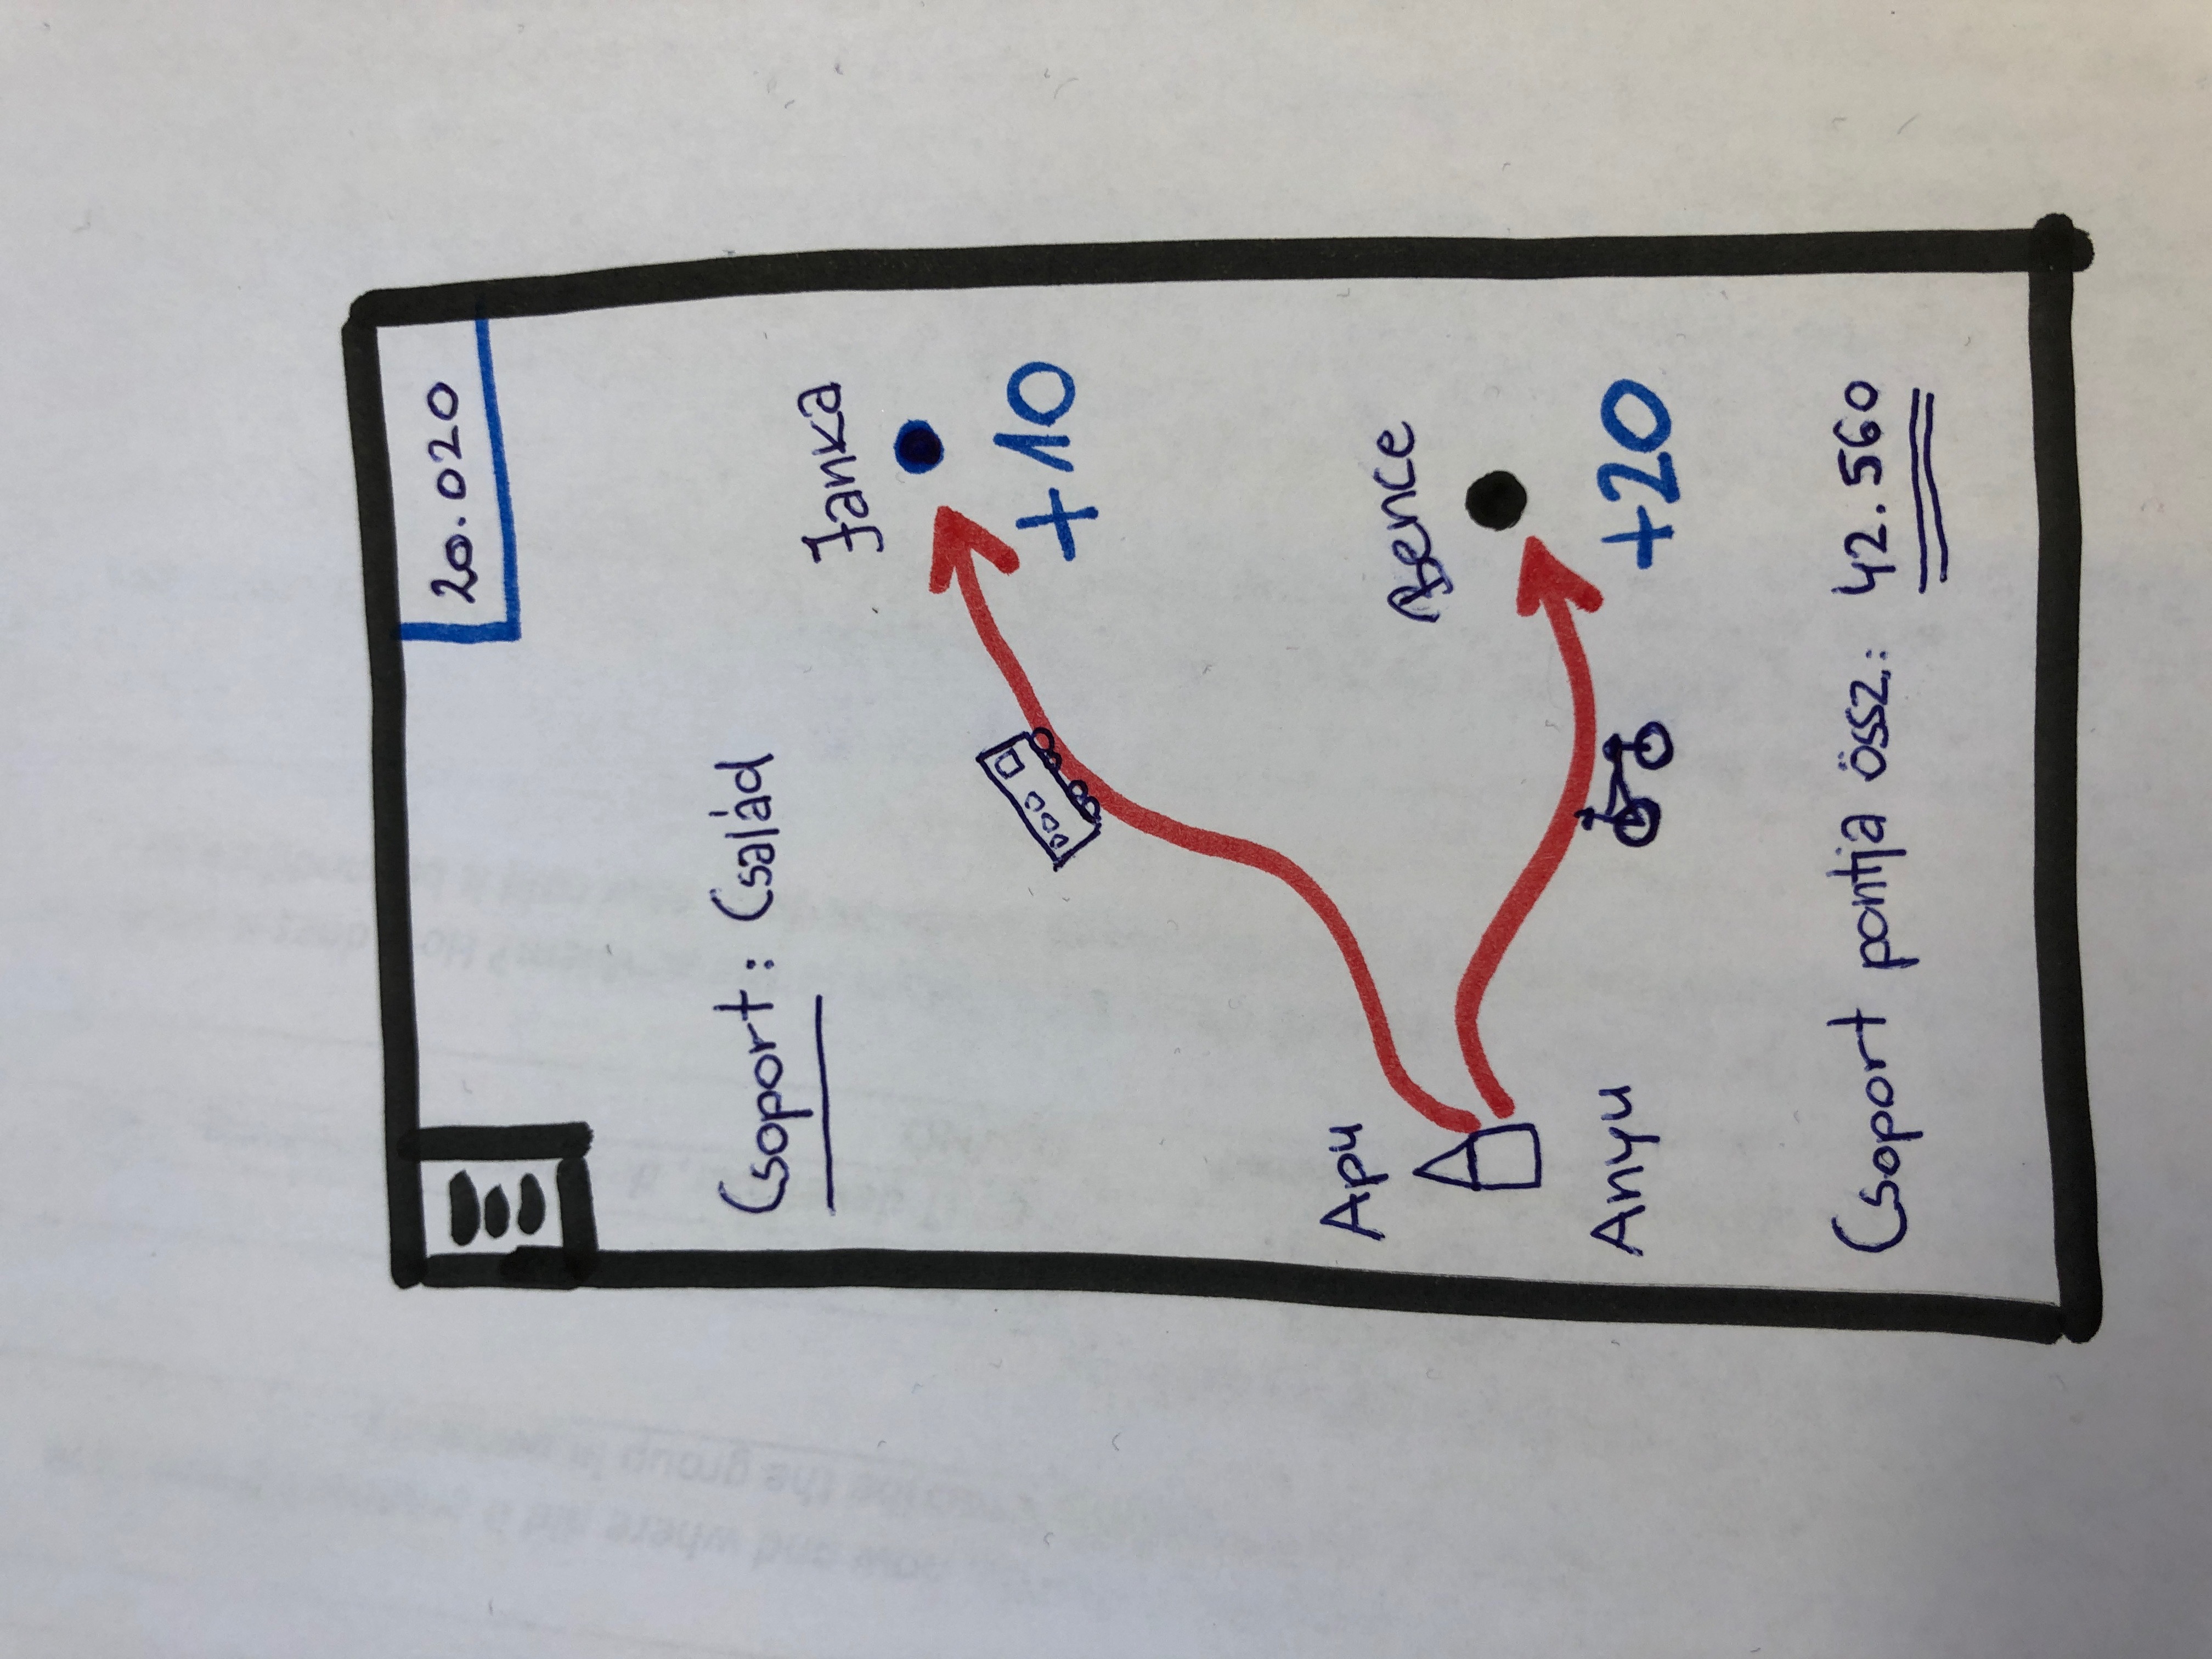 20.020
Csoport: Család
Janka
+10
Apu
Bence
Anyu
+20
Csoport pontja össz.: 42.560